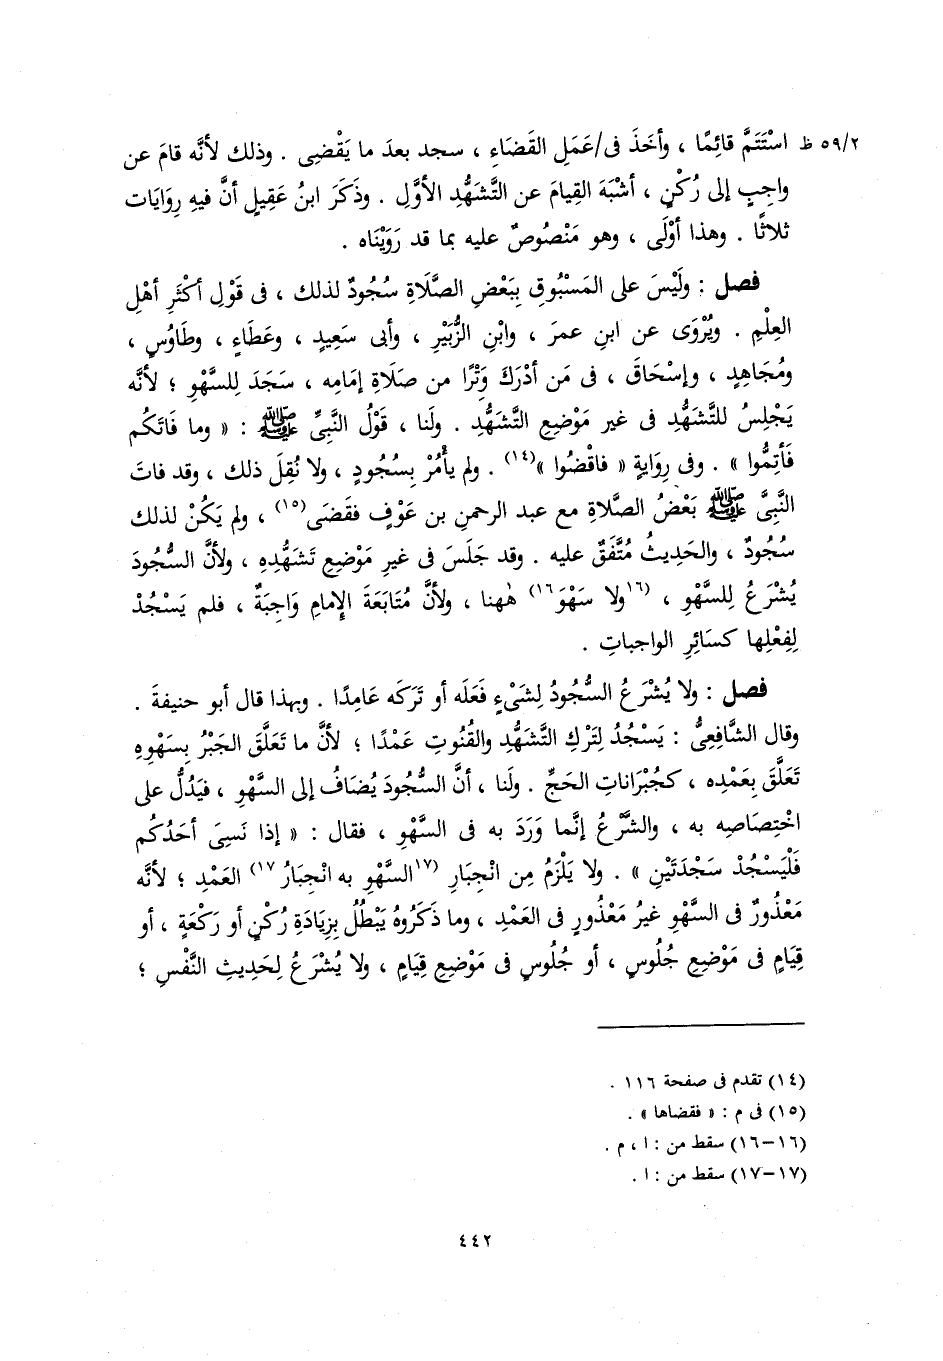 ٥٩/٢ ظ استَتَمَّ قائِمًا ، وأخَذَ فى/عَمَلِ القَضَاءِ ، سجد بعدَ ما يَقْضِى . وذلك لأنَّه قامَ عن
واجِبٍ إلى رُكْنٍ ، أشْبَهَ القِيامَ عن التَّشَهُّدِ الأوَّلِ . وذَكَرَ ابنُ عَقِيلٍ أنَّ فيه رِوَايَات
ثلاثًا . وهذا أوْلَى ، وهو مَنْصُوصٌ عليه بما قد رَوَيْنَاه .
فصل : ولَيْسَ على المَسْبُوقِ بِبَعْضِ الصَّلَاةِ سُجُودٌ لذلك ، فى قَوْلِ أكْثَرِ أهْلِ
العِلْمِ . ويُرْوَى عن ابنِ عمرَ ، وابْنِ الزُّبَيْرِ ، وأبى سَعِيدٍ ، وعَطَاءٍ ، وطَاوُسٍ ،
ومُجَاهِدٍ ، وإسْحَاقَ ، فى مَن أدْرَكَ وَتْرًا من صَلَاةِ إمَامِه ، سَجَدَ لِلسَّهْوِ ؛ لأنَّه
يَجْلِسُ للتَّشَهُّدِ فى غير مَوْضِعِ التَّشَهُّدِ . ولَنا ، قَوْلُ النَّبِىِّ ﷺ : « وما فَاتَكُم
فَأتِمُّوا » . وفى رِوَايَةٍ « فاقْضُوا »(١٤) . ولم يأْمُرْ بِسُجُودٍ ، ولا نُقِلَ ذلك ، وقد فاتَ
النَّبِىَّ ﷺ بَعْضُ الصَّلَاةِ مع عبد الرحمنِ بن عَوْفٍ فقَضَى(١٥) ، ولم يَكُنْ لذلك
سُجُودٌ ، والحَدِيثُ مُتَّفَقٌ عليه . وقد جَلَسَ فى غيرِ مَوْضِعِ تَشَهُّدِهِ ، ولأنَّ السُّجُودَ
يُشْرَعُ لِلسَّهْوِ ، (١٦ولا سَهْوَ١٦) هٰهنا ، ولأنَّ مُتَابَعَةَ الإِمامِ وَاجِبَةٌ ، فلم يَسْجُدْ
لِفِعْلِها كسَائِرِ الواجباتِ .
فصل : ولا يُشْرَعُ السُّجُودُ لِشَىْءٍ فَعَلَه أو تَرَكَه عَامِدًا . وبهذا قال أبو حنيفةَ .
وقال الشَّافِعِىُّ : يَسْجُدُ لِتَرْكِ التَّشَهُّدِ والقُنُوتِ عَمْدًا ؛ لأنَّ ما تَعَلَّقَ الجَبْرُ بِسَهْوِه
تَعَلَّقَ بِعَمْدِه ، كجُبْرَاناتِ الحَجِّ . ولَنا ، أنَّ السُّجُودَ يُضَافُ إلى السَّهْوِ ، فيَدُلُّ على
اخْتِصَاصِه به ، والشَّرْعُ إنَّما وَرَدَ به فى السَّهْوِ ، فقال : « إذا نَسِىَ أحَدُكُم
فَلْيَسْجُدْ سَجْدَتَيْنِ » . ولا يَلْزَمُ مِن انْجِبَارِ (١٧السَّهْوِ به انْجِبَارُ١٧) العَمْدِ ؛ لأنَّه
مَعْذُورٌ فى السَّهْوِ غيرُ مَعْذُورٍ فى العَمْدِ ، وما ذَكَرُوهُ يَبْطُلُ بِزِيَادَةِ رُكْنٍ أو رَكْعَةٍ ، أو
قِيَامٍ فى مَوْضِعِ جُلُوسٍ ، أو جُلُوسٍ فى مَوْضِعِ قِيَامٍ ، ولا يُشْرَعُ لِحَدِيثِ النَّفْسِ ؛
(١٤) تقدم فى صفحة ١١٦ .
(١٥) فى م : « فقضاها » .
(١٦-١٦) سقط من : ا ، م .
(١٧-١٧) سقط من : ا .
٤٤٢